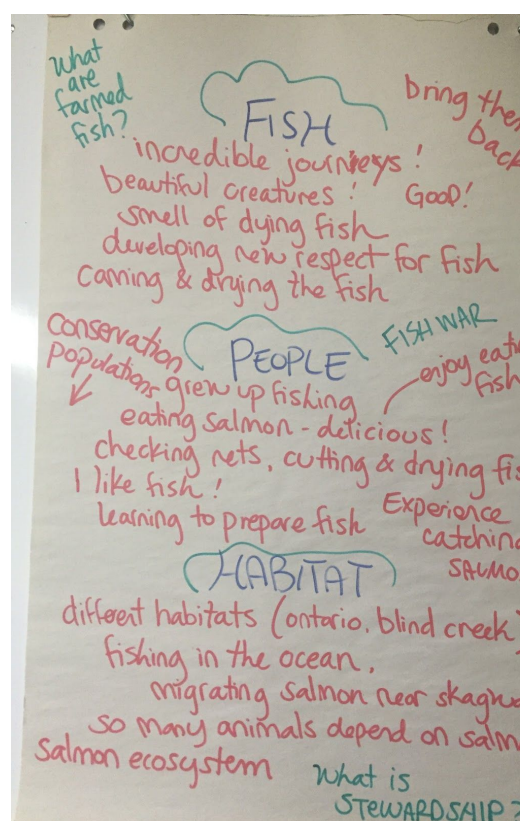 What
are
farmed
fish?
FISH
bring
back
incredible journeys!
beautiful creatures!
GOOD!
smell of dying fish
developing new respect for fish
canning & drying the fish
conservation
populations
PEOPLE
FISH WAR
enjoy
fish
grew up fishing
eating salmon - delicious!
checking nets, cutting & drying
I like fish!
learning to prepare fish
Experience
HABITAT
different habitats (ontario, blind creek
fishing in the ocean,
migrating salmon near
so many animals depend on
salmon ecosystem
What is
STEWARDSHIP?